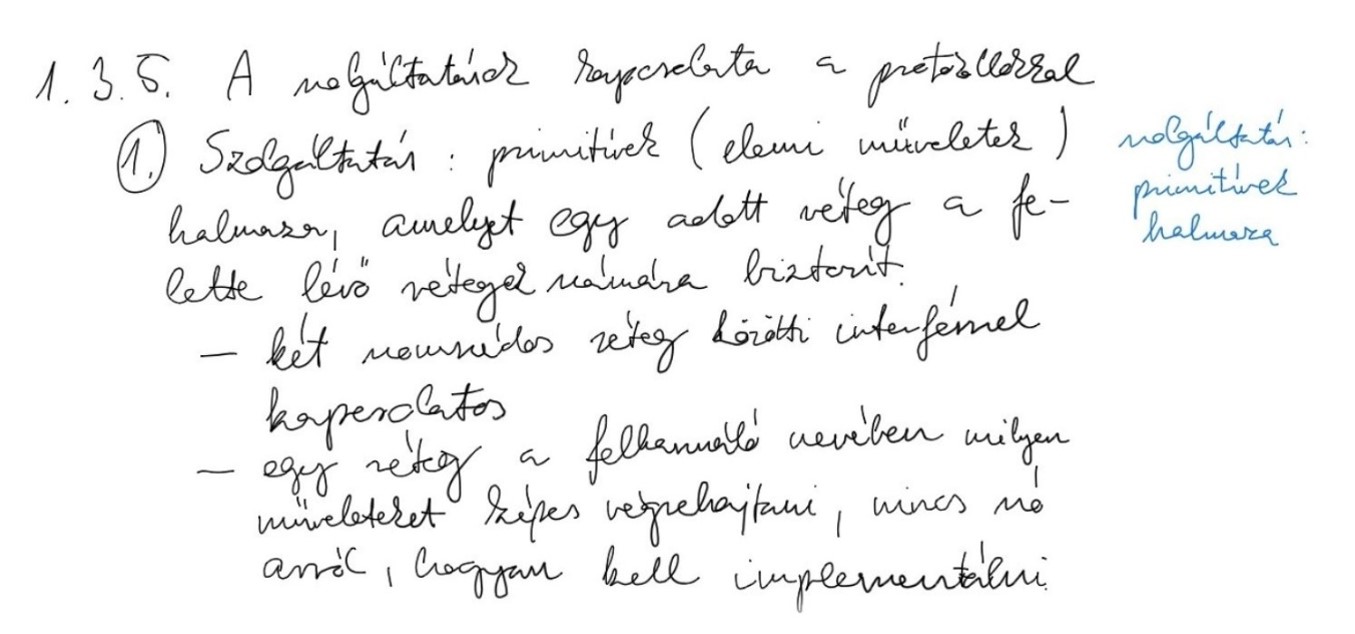 1.3.5. A szolgáltatások kapcsolata a protokollokkal
1. Szolgáltatás: primitívek (elemi műveletek)
halmaza, amelyet egy adott réteg a fe-
lette lévő rétegek számára biztosít.
— két szomszédos réteg közötti interfésszel
kapcsolatos
— egy réteg a felhasználó nevében milyen
műveleteket képes végrehajtani, nincs szó
arról, hogyan kell implementálni
szolgáltatás:
primitívek
halmaza